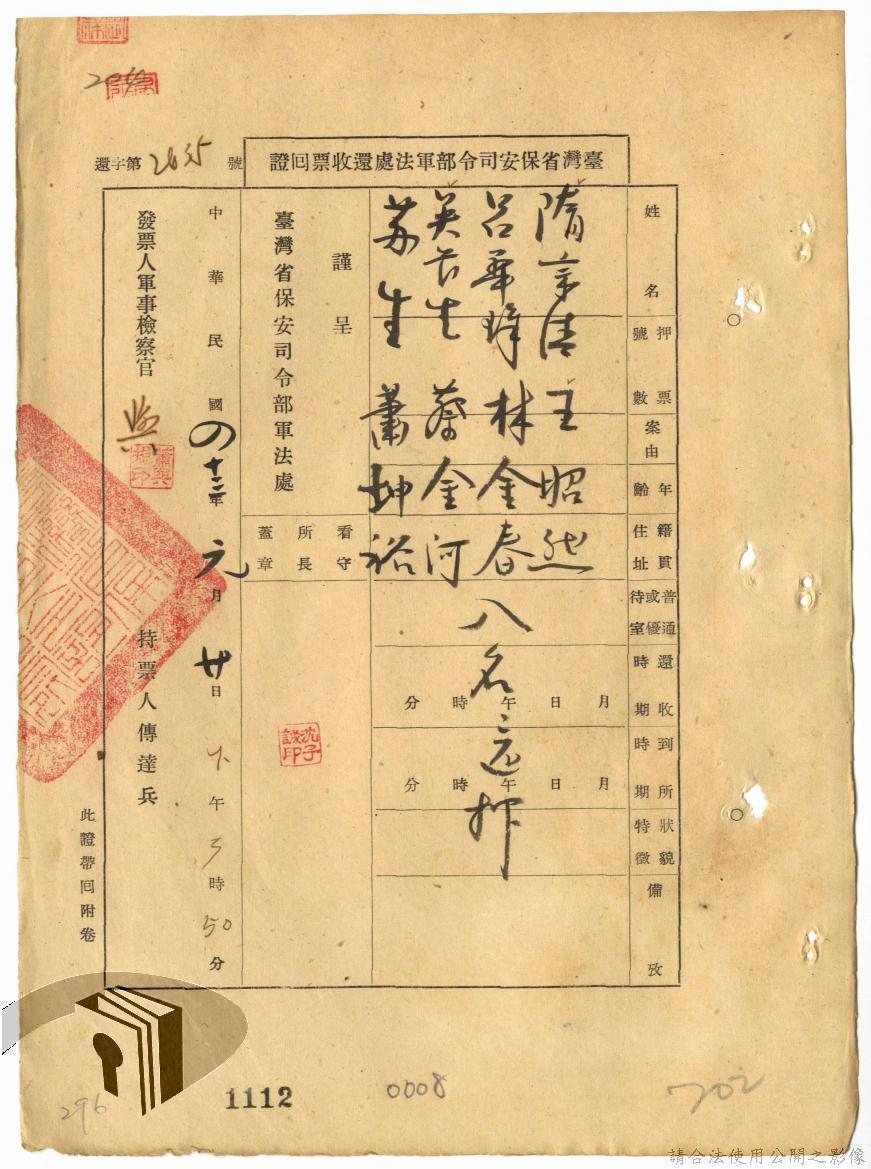 臺灣省保安司令部軍法處還收票回證
還字第2635號
姓名
押票號數
案由
年齡
籍貫住址
普通或優待室
還收時期
到所時期
狀貌特徵
備攷
隋京清 王昭
呂華璋 林金春
吳哲生 蔡金河
苏生 蕭坤裕
八名还押
月日午時分
月日午時分
謹呈
臺灣省保安司令部軍法處
看守所長蓋章
沈子誠印
中華民國四十三年元月廿日下午3時50分
發票人軍事檢察官
持票人傳達兵
此證帶回附卷
296
1112
0008
702
請合法使用公開之影像